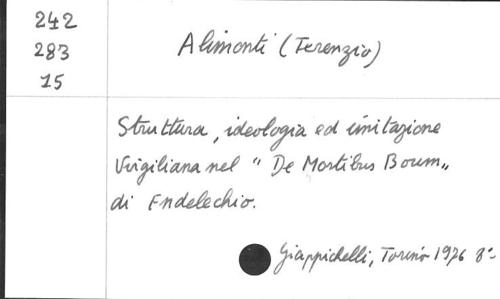 242
283
15
Alimonti (Terenzio)
Struttura, ideologia ed imitazione
Virgiliana nel "De Mortibus Boum"
di Endelechio.
Giappichelli, Torino 1976 8°